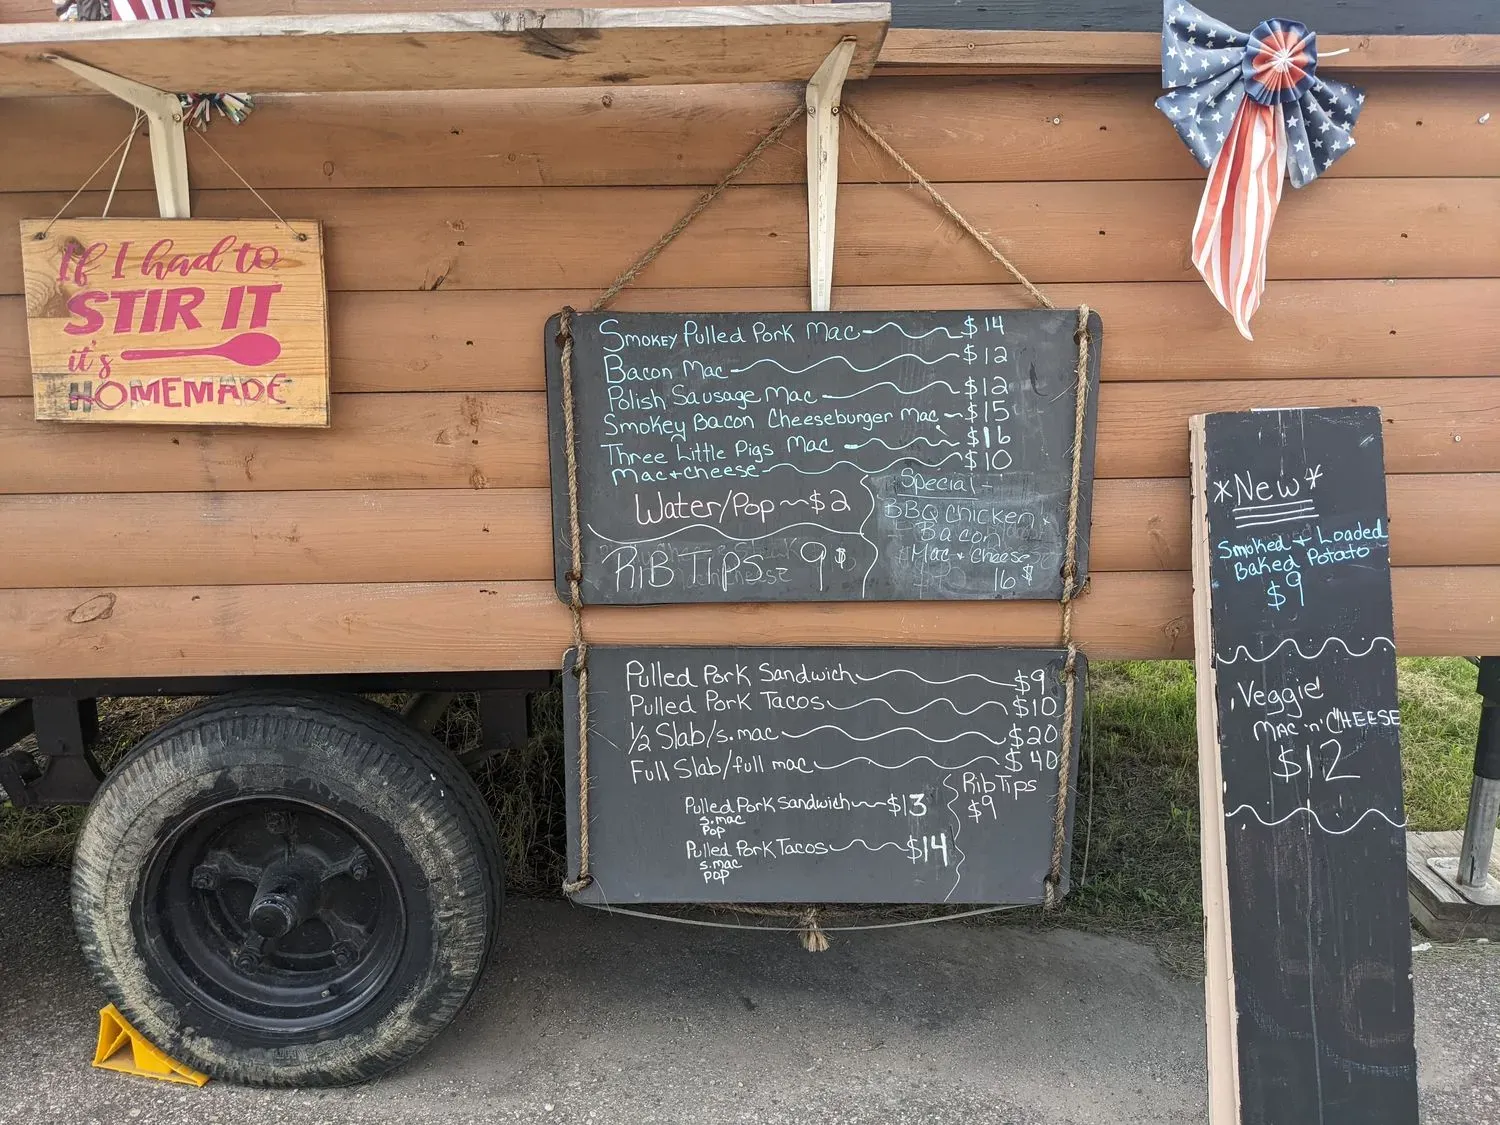 If I had to
STIR IT
it's
HOMEMADE
Smokey Pulled Pork Mac $14
Bacon Mac $12
Polish Sausage Mac $12
Smokey Bacon Cheeseburger Mac $15
Three Little Pigs Mac $16
Mac+cheese $10
Water/Pop $2
RiB TiPS 9$
Special -
BBQ Chicken +
Bacon
Mac + Cheese
16$
Pulled Pork Sandwich $9
Pulled Pork Tacos $10
1/2 Slab/s.mac $20
Full Slab/full mac $40
Pulled Pork Sandwich $13
s.mac
Pop
Pulled Pork Tacos $14
s.mac
pop
Rib Tips
$9
*New*
Smoked + Loaded
Baked Potato
$9
Veggie
MAC 'n' CHEESE
$12